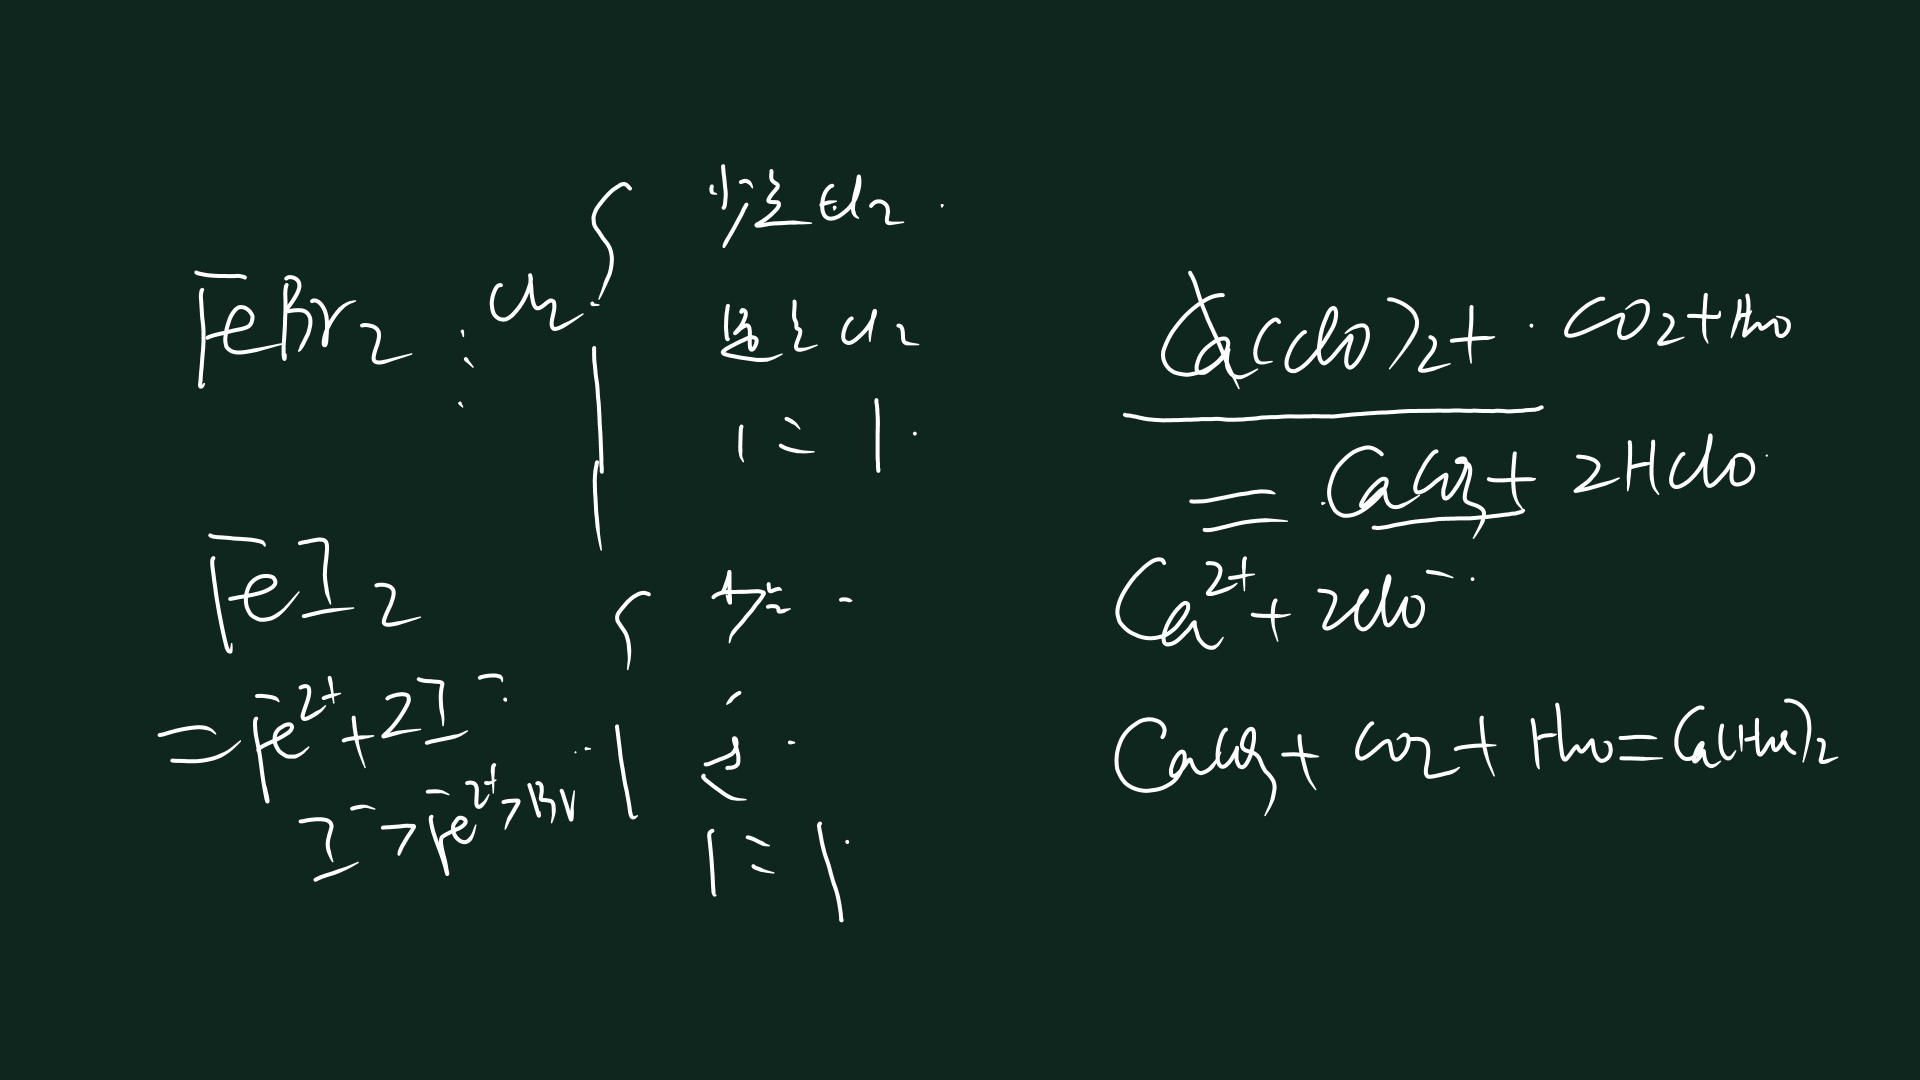 少量Cl2
FeBr2 : Cl2
过量Cl2
1 = 1
FeI2
少量
= Fe2+ + 2I-
I- > Fe2+ > Br
1 = 1
Ca(ClO)2 + CO2 + H2O
= CaCO3 + 2HClO
Ca2+ + 2ClO-
CaCO3 + CO2 + H2O = Ca(HCO3)2